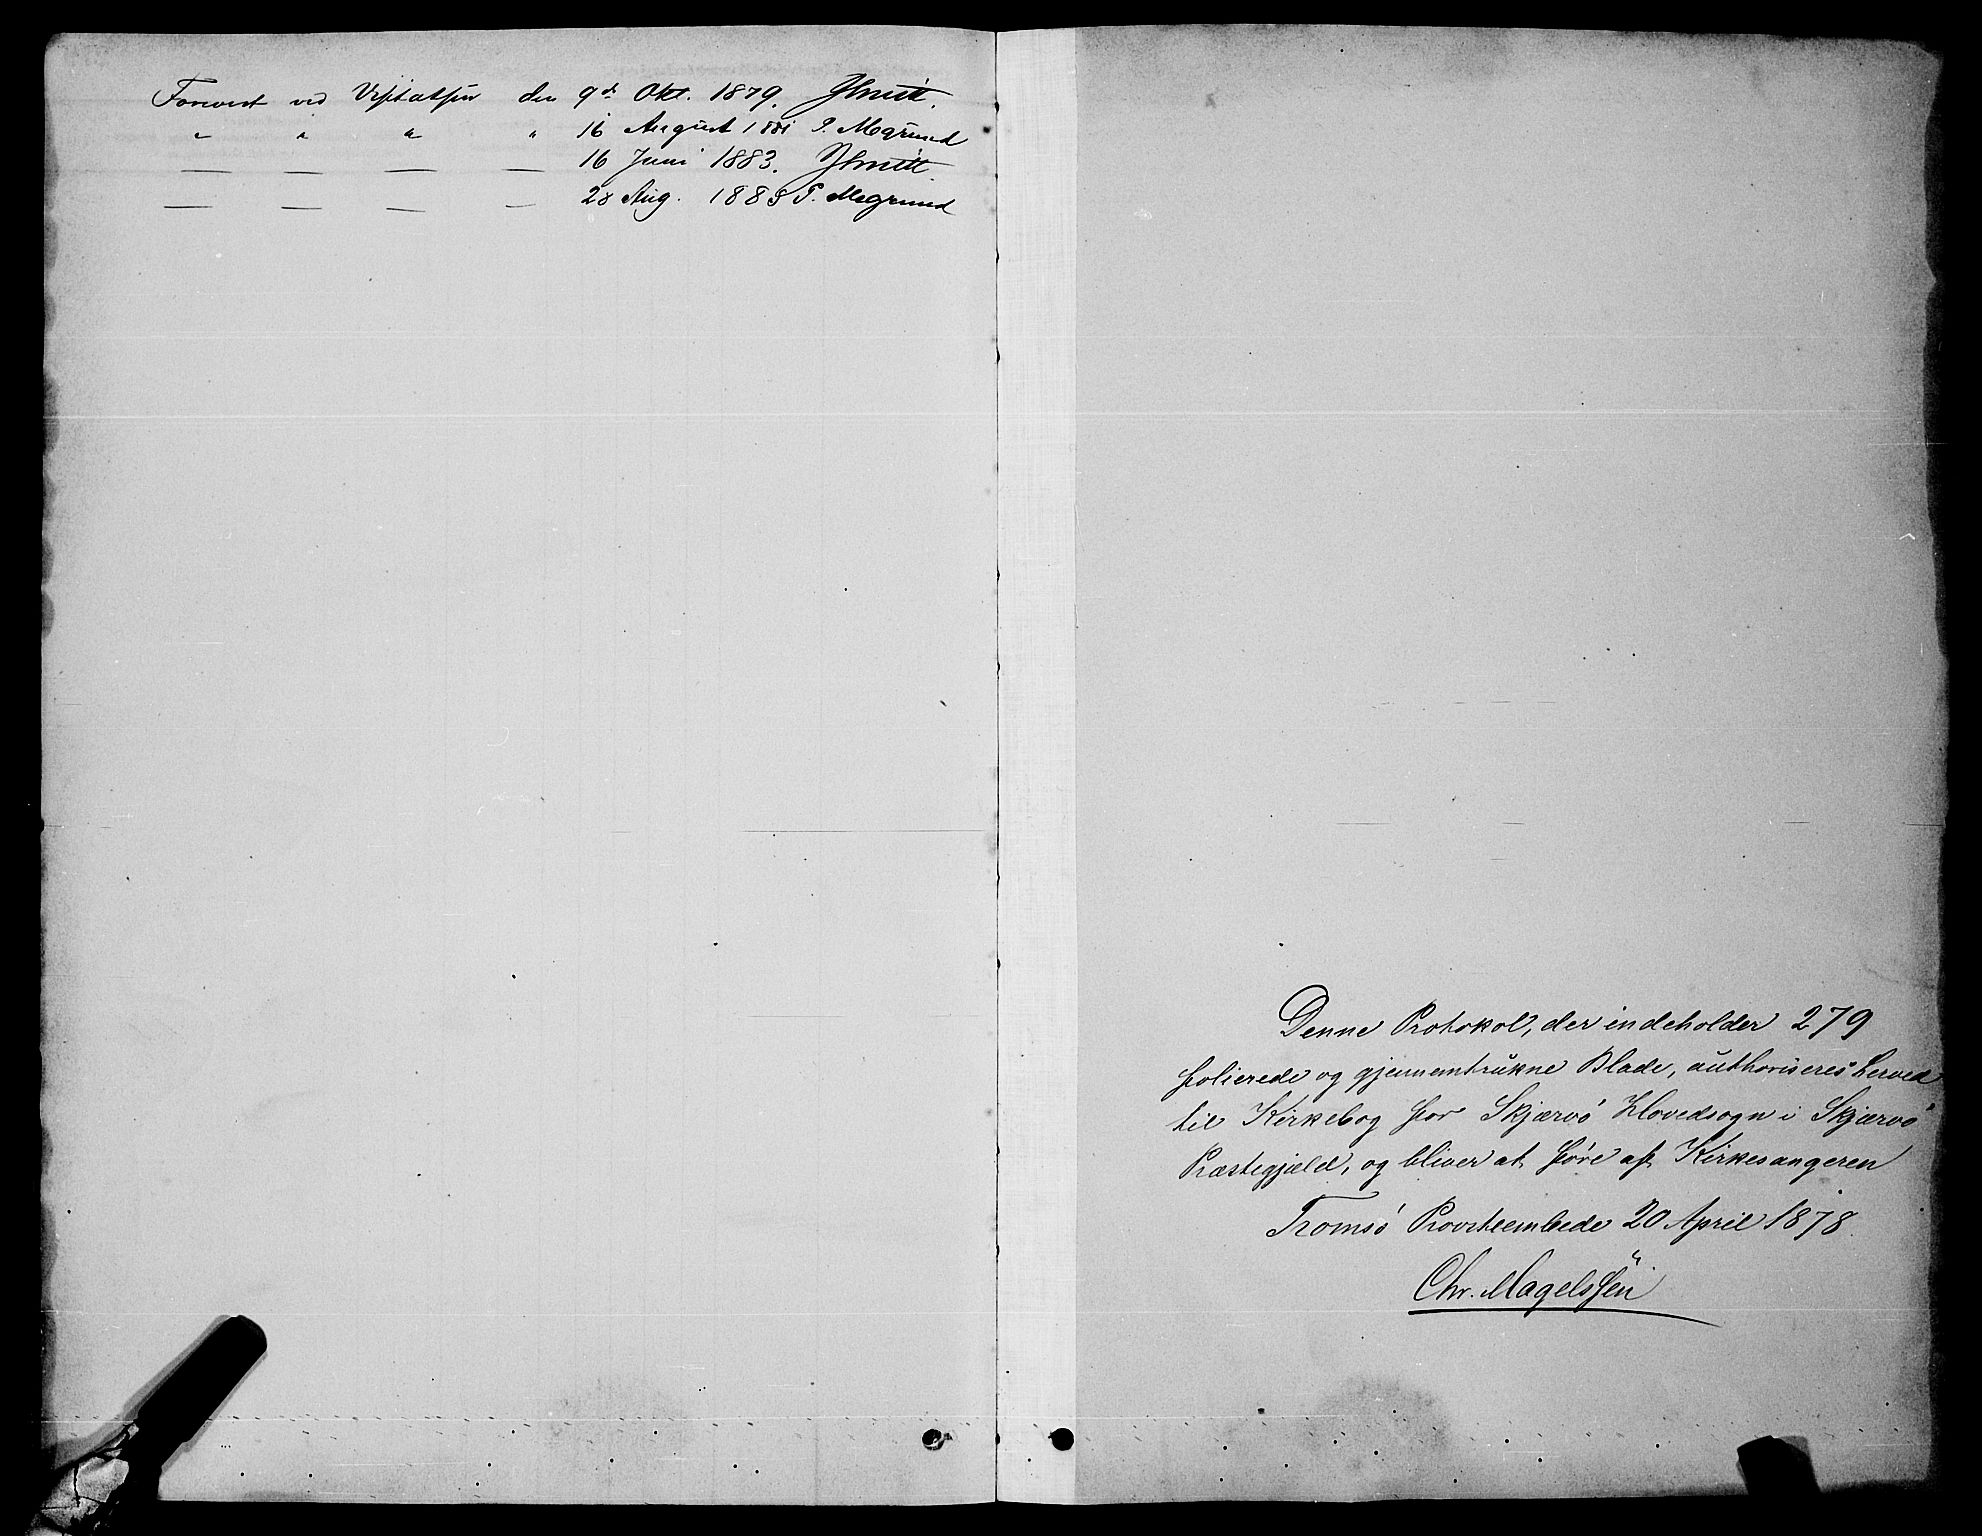 Forevist ved Visitatsen den 9d Okt. 1879. JSmitt.
" " " " 16 August 1881 P. Mogrund
— — — — 16 Juni 1883. JSmitt.
— — — — 28 Aug. 1885 P. Mogrund
Denne Protokol, der indeholder 279
folierede og gjennemtrukne Blade, authoriseres herved
til Kirkebog for Skjærvö Hovedsogn i Skjærvö
Præstegjæld, og bliver at føre af Kirkesangeren
Tromsö Provsteembede 20 April 1878.
Chr. Magelssen